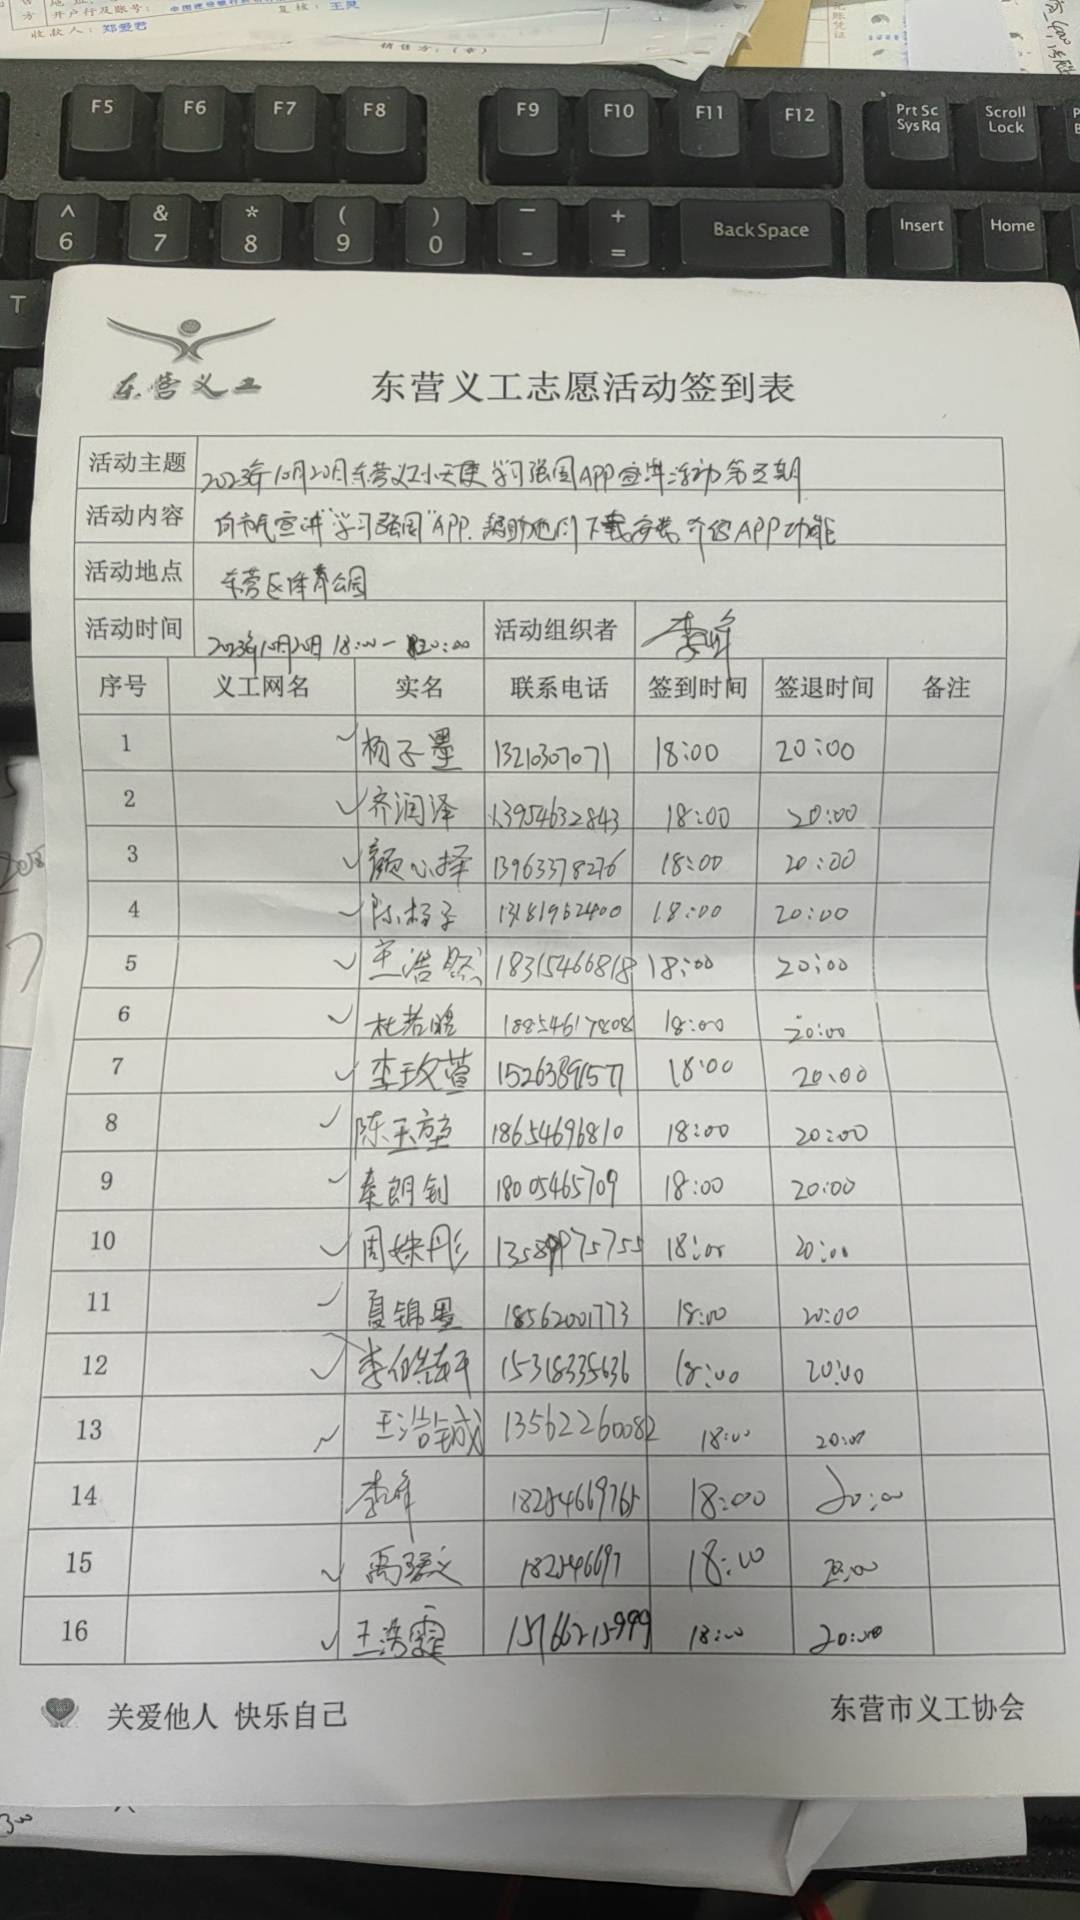 开户行及账号：
复核：王灵
收款人：郑爱君
销售方：（章）
F5 F6 F7 F8 F9 F10 F11 F12 Prt Sc SysRq Scroll Lock
^ 6 & 7 * 8 ( 9 ) 0 — - + = Back Space Insert Home
T
东营义工
东营义工志愿活动签到表
活动主题 2023年10月20日东营义工小天使学习强国APP宣讲活动第五期
活动内容 向市民宣讲"学习强国"APP.帮助他们下载安装,介绍APP功能
活动地点 东营区 公园
活动时间 2023年10月20日 18:00— 20:00 活动组织者 李峰
序号 义工网名 实名 联系电话 签到时间 签退时间 备注
1 杨子墨 13210307071 18:00 20:00
2 齐润泽 13954632843 18:00 20:00
3 颜心择 13963378276 18:00 20:00
4 陈杨子 13181962400 18:00 20:00
5 王浩然 18315466818 18:00 20:00
6 杜若晗 18854617808 18:00 20:00
7 李玟萱 15263891577 18:00 20:00
8 陈玉堃 18654696810 18:00 20:00
9 秦朗钊 18005465709 18:00 20:00
10 周姝彤 13589975755 18:00 20:00
11 夏锦墨 18562001773 18:00 20:00
12 李 15318335636 18:00 20:00
13 王浩铖 13562260082 18:00 20:00
14 李峰 18254669765 18:00 20:00
15 182546697 18:00 20:00
16 王浩霆 15766215999 18:00 20:00
关爱他人 快乐自己
东营市义工协会